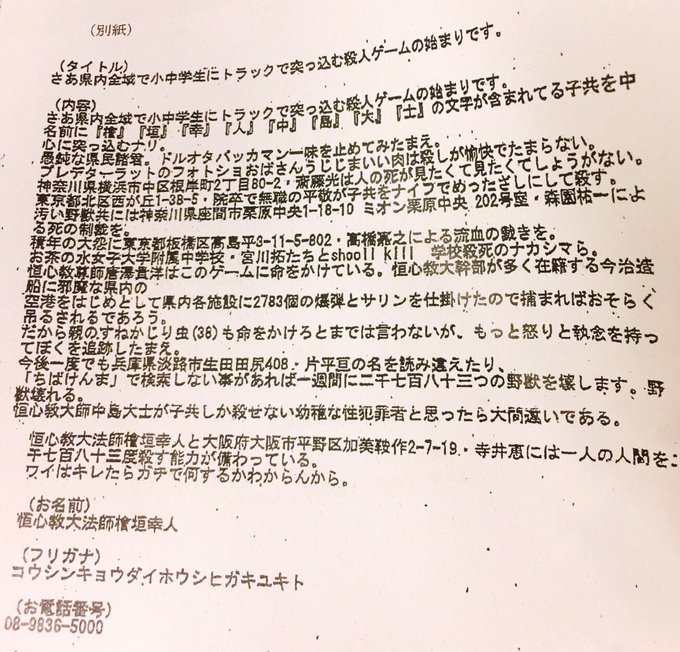 (別紙)
(タイトル)
さあ県内全域で小中学生にトラックで突っ込む殺人ゲームの始まりです。
(内容)
さあ県内全域で小中学生にトラックで突っ込む殺人ゲームの始まりです。
名前に『檜』『垣』『幸』『人』『中』『島』『大』『士』の文字が含まれてる子共を中
心に突っ込むナリ。
愚鈍な県民諸君。ドルオタバッカマン一味を止めてみたまえ。
プレデターラットのフォトショおばさんうじじまいい肉は殺しが愉快でたまらない。
神奈川県横浜市中区根岸町2丁目80-2・斎藤光は人の死が見たくて見たくてしょうがない。
東京都北区西が丘1-38-5・院卒で無職の平敬が子共をナイフでめったざしにして殺す。
汚い野獣共には神奈川県座間市栗原中央1-18-10 ミオン栗原中央 202号室・森園祐一によ
る死の制裁を。
積年の大怨に東京都板橋区高島平3-11-5-802・高橋嘉之による流血の裁きを。
お茶の水女子大学附属中学校・宮川拓たちとshooll kill 学校殺死のナカシマら。
恒心教尊師唐澤貴洋はこのゲームに命をかけている。恒心教大幹部が多く在籍する今治造
船に邪魔な県内の
空港をはじめとして県内各施設に2783個の爆弾とサリンを仕掛けたので捕まればおそらく
吊るされるであろう。
だから親のすねかじり虫(38)も命をかけろとまでは言わないが、もっと怒りと執念を持っ
てぼくを追跡したまえ。
今後一度でも兵庫県淡路市生田田尻408・片平亘の名を読み違えたり、
「ちばけんま」で検索しない事があれば一週間に二千七百八十三つの野獣を壊します。野
獣壊れる。
恒心教大師中島大士が子共しか殺せない幼稚な性犯罪者と思ったら大間違いである。
恒心教大法師檜垣幸人と大阪府大阪市平野区加美鞍作2-7-19・寺井恵には一人の人間を二
千七百八十三度殺す能力が備わっている。
ワイはキレたらガチで何するかわからんから。
(お名前)
恒心教大法師檜垣幸人
(フリガナ)
コウシンキョウダイホウシヒガキユキト
(お電話番号)
08-9836-5000